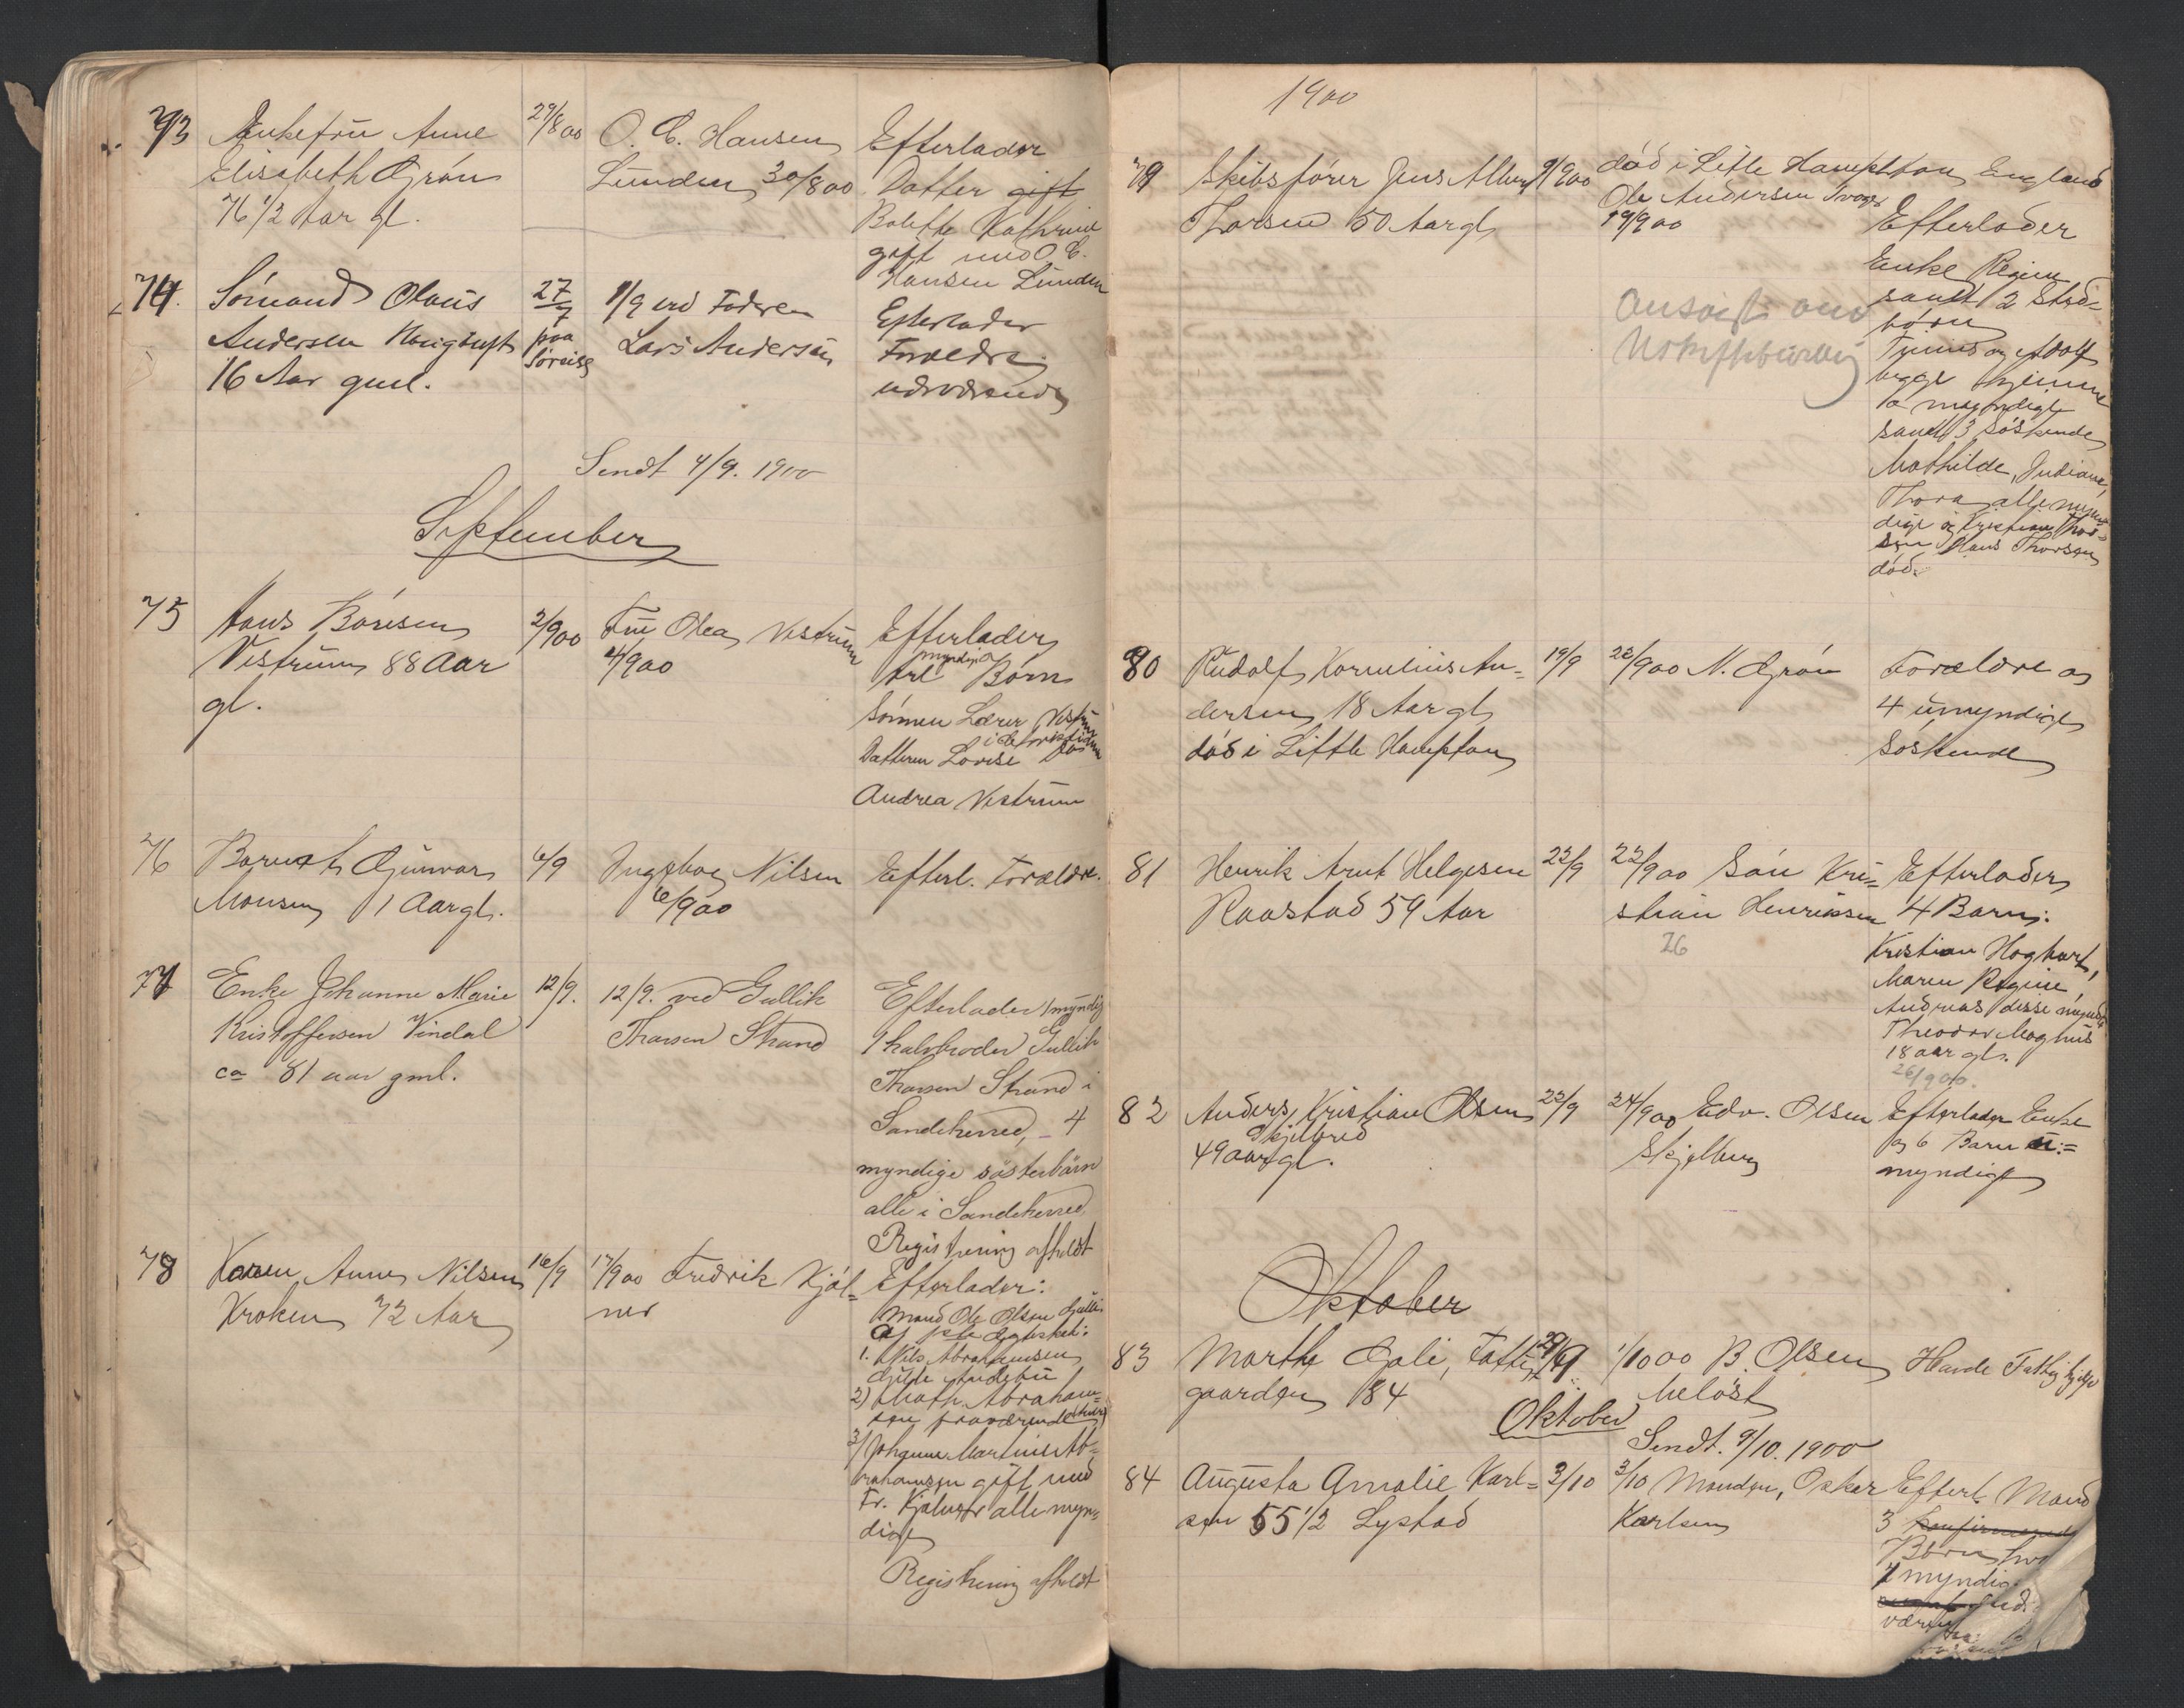 73 Enkefru Anne
Elisabeth Grøn
76 1/2 Aar gl.
29/8 00
O. C. Hansen
Lunden 30/8 00
Efterlader
Datter gift
Bolette Kathrine
gift med O. C.
Hansen Lunden
74. Sömand Olaus
Andersen Haugtuft
16 Aar gml.
27/7
paa
Søreise
1/9 ved Faderen
Lars Andersen
Efterlader
Forældre
Sendt 4/9. 1900
September
75 Hans Börsesen
Vestrum 88 Aar
gl.
2/9 00
Fru Olea Vestrum
4/9 00
Efterlader
myndige
Arl Börn
Sönnen Lærer Vestrum
Datteren Lovise
Andrea Vestrum
76 Barnet Gunvor
Monsen 1 Aar gl.
6/9
Ingeborg Nilsen
6/9 00
Efterl. Forældre.
77 Enke Johanne Marie
Kristoffersen Vindal
ca 81 aar gml.
12/9.
12/9. ved Gullik
Thorsen Strand
Efterlader 1 myndig
halvbroder Gullik
Thorsen Strand i
Sandeherred, 4
myndige søsterbørn
alle i Sandeherred.
Registrering afholdt
78 Karen Anne Nilsen
Kroken 72 Aar
16/9
17/9 00 Fredrik Kjøl=
ner
Efterlader:
Mand Ole Olsen
1. Nils Abrahamsen
2) Math. Abraham=
sen fraværende
3/ Johanne Martine Ab=
rahamsen gift med
Fr. Kjølner alle myn=
dige
Registrering afholdt
1900
79 Skibsfører Jens Albert
Thorsen 50 Aar gl
9/9 00
död i Litle Hampton England
Ole Andersen Svoger
19/9 00
Efterlader
Enke Regine
samt 2 Sted=
börn
og Adolf
begge hjemme
o myndige
samt 3 Söskende
Mathilde, Indiane,
Thora alle myn=
dige og Kristian Thor=
sen Hans Thorsen
död.
Ansøgt om
Uskiftebevilling
80 Rudolf Kornelius An=
dersen 18 Aar gl
död i Little Hampton
19/9
22/9 00 N. Grøn
Forældre og
4 umyndige
Söskende
81 Henrik Arnt Helgesen
Raastad 59 Aar
22/9
22/9 00 Sön Kri=
stian Henriksen
26
Efterlader
4 Barn:
Kristian Hogbart,
Maren Regine,
Andreas disse myndige
Theodor Maghus
18 aar gl.
26/9 00.
82 Anders Kristian Olsen
Skjelbred
49 aar gl.
22/9
24/9 00 Edv. Olsen
Skjelbred
Efterlader Enke
og 6 Barn u=
myndige
Oktober
83 Marthe Gali, Fattig
gaarden 84
29/9
1/10 00 B. Olsen
Melöst
Havde Fattighjelp
Oktober
Sendt. 9/10. 1900
84 Augusta Amalie Karl=
sen 55 1/2 Lystad
3/10
3/10 Manden, Oskar
Karlsen
Efterl. Mand
3 konfirmerede
Börn
1 myndig